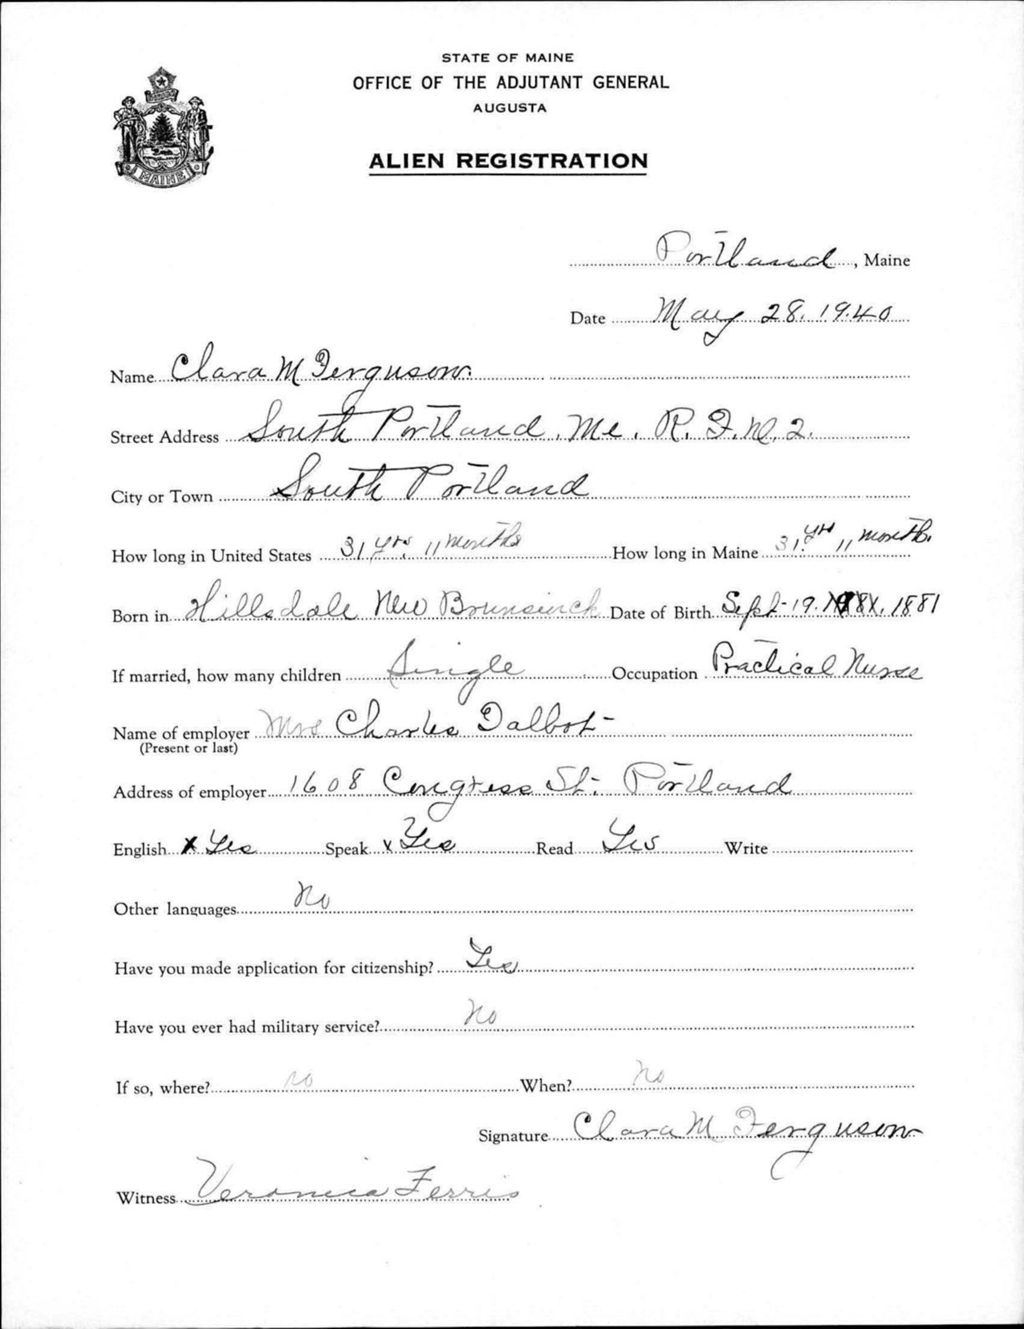 STATE OF MAINE
OFFICE OF THE ADJUTANT GENERAL
AUGUSTA
ALIEN REGISTRATION
MAINE
Portland, Maine
Date May 28, 1940
Name Clara M Ferguson
Street Address South Portland, Me. R.F.D. 2.
City or Town South Portland
How long in United States 31 yrs. 11 months How long in Maine 31 yrs 11 months.
Born in Hillsdale New Brunswick Date of Birth Sept-19. 1881
If married, how many children Single Occupation Practical Nurse
Name of employer Mrs Charles Talbot
(Present or last)
Address of employer 1608 Congress St. Portland
English x Yes Speak x Yes Read Yes Write
Other languages No
Have you made application for citizenship? Yes
Have you ever had military service? No
If so, where? no When? No
Signature Clara M Ferguson
Witness Veronica Ferris